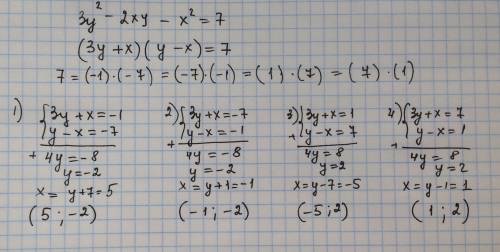 3y² - 2xy - x² = 7
(3y + x)(y - x) = 7
7 = (-1)·(-7) = (-7)·(-1) = (1)·(7) = (7)·(1)
1) { 3y + x = -1
y - x = -7
+ 4y = -8
y = -2
x = y + 7 = 5
(5 ; -2)
2) { 3y + x = -7
y - x = -1
+ 4y = -8
y = -2
x = y + 1 = -1
(-1 ; -2)
3) { 3y + x = 1
y - x = 7
+ 4y = 8
y = 2
x = y - 7 = -5
(-5 ; 2)
4) { 3y + x = 7
y - x = 1
+ 4y = 8
y = 2
x = y - 1 = 1
(1 ; 2)